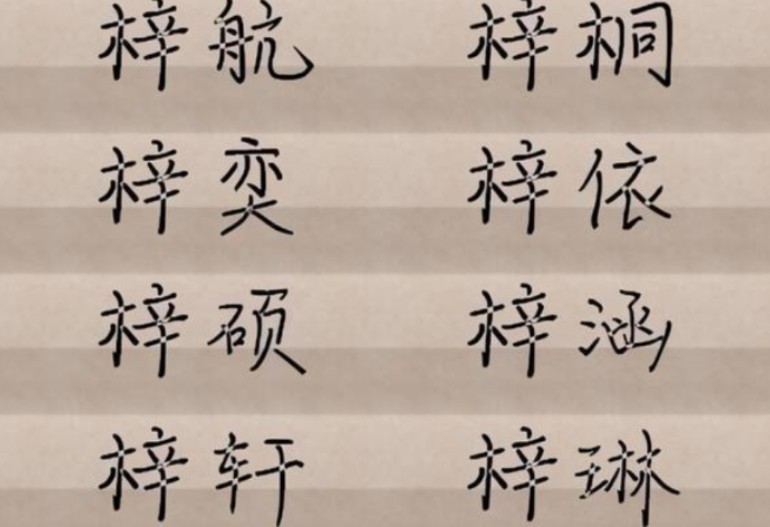 梓航 梓桐
梓奕 梓依
梓硕 梓涵
梓轩 梓琳